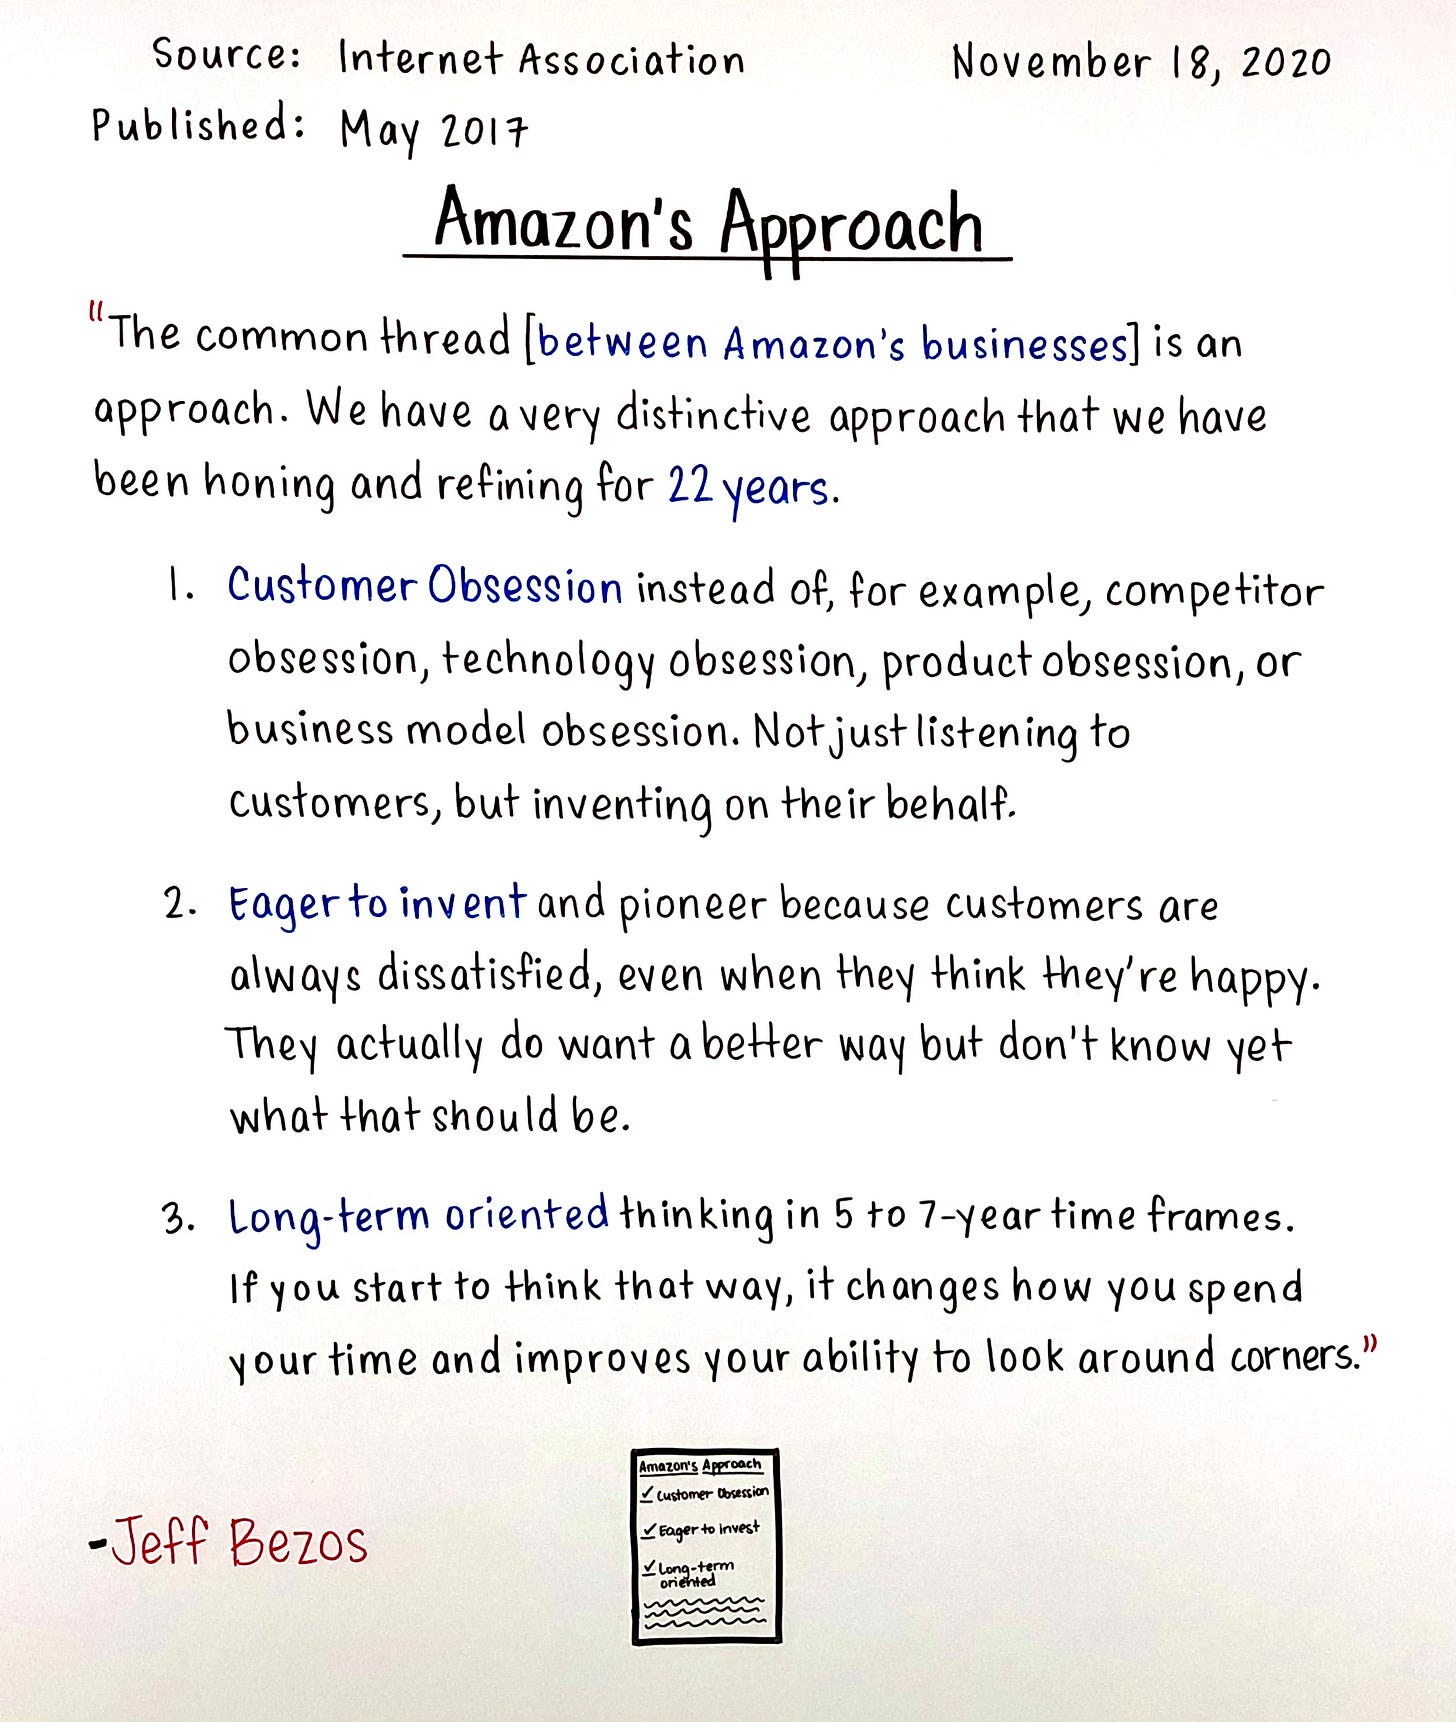 Source: Internet Association
November 18, 2020
Published: May 2017
Amazon's Approach
"The common thread [between Amazon's businesses] is an
approach. We have a very distinctive approach that we have
been honing and refining for 22 years.
1. Customer Obsession instead of, for example, competitor
obsession, technology obsession, product obsession, or
business model obsession. Not just listening to
customers, but inventing on their behalf.
2. Eager to invent and pioneer because customers are
always dissatisfied, even when they think they're happy.
They actually do want a better way but don't know yet
what that should be.
3. Long-term oriented thinking in 5 to 7-year time frames.
If you start to think that way, it changes how you spend
your time and improves your ability to look around corners."
-Jeff Bezos
Amazon's Approach
✓ Customer Obsession
✓ Eager to invest
✓ Long-term
oriented